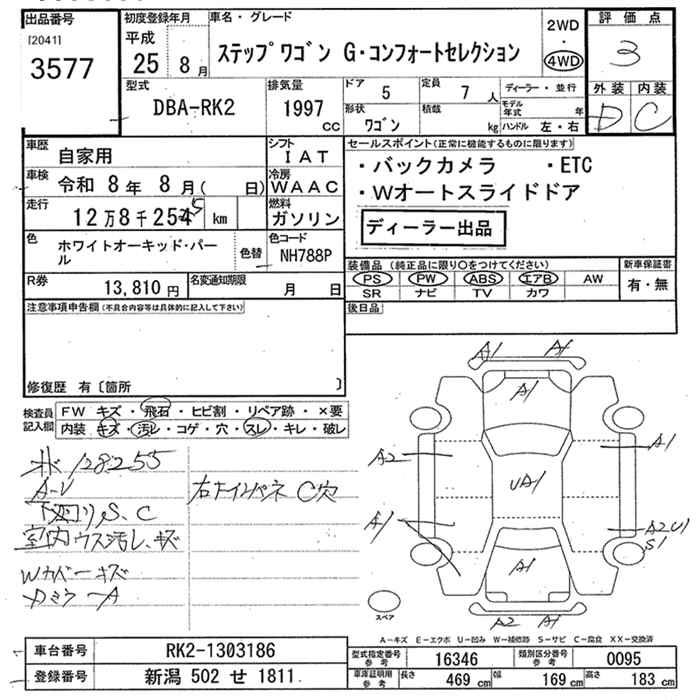 出品番号
[2041]
3577
初度登録年月
平成
25 8月
車名・グレード
ステップワゴン G・コンフォートセレクション
2WD
・
4WD
評価点
3
外装 内装
D C
型式
DBA-RK2
排気量
1997
CC
ドア
5
形状
ワゴン
定員
7 人
積載
kg
ディーラー・並行
モデル年式 年
ハンドル 左・右
車歴
自家用
シフト
IAT
車検
令和 8年 8月( 日)
冷房
WAAC
走行
12万8千254 km
5
燃料
ガソリン
色
ホワイトオーキッド・パール
色替
色コード
NH788P
R券
13,810 円
名変通知期限
月 日
セールスポイント(正常に機能するものに限ります)
・バックカメラ ・ETC
・Wオートスライドドア
ディーラー出品
装備品(純正品に限り○をつけてください)
PS PW ABS エアB AW
SR ナビ TV カワ
新車保証書
有・無
後日品
注意事項申告欄(不具合内容等は具体的に記入して下さい)
修復歴 有〔箇所 〕
検査員
記入欄
FW キズ・飛石・ヒビ割・リペア跡・×要
内装 キズ・汚レ・コゲ・穴・スレ・キレ・破レ
128255
A-V
下回りS、C
室内ウス汚レ、キズ
Wカバーキズ
右リインパネ C穴
A1 A1
A1
A2
A1
UA1
A1
A2U1
S1
A1
A2 A1
スペア
A－キズ E－エクボ U－凹み W－補修跡 S－サビ C－腐食 XX－交換済
車台番号
RK2-1303186
登録番号
新潟 502 せ 1811
型式指定番号
参考
16346
類別区分番号
参考
0095
車庫証明用
参考
長さ
469 cm
幅
169 cm
高さ
183 cm